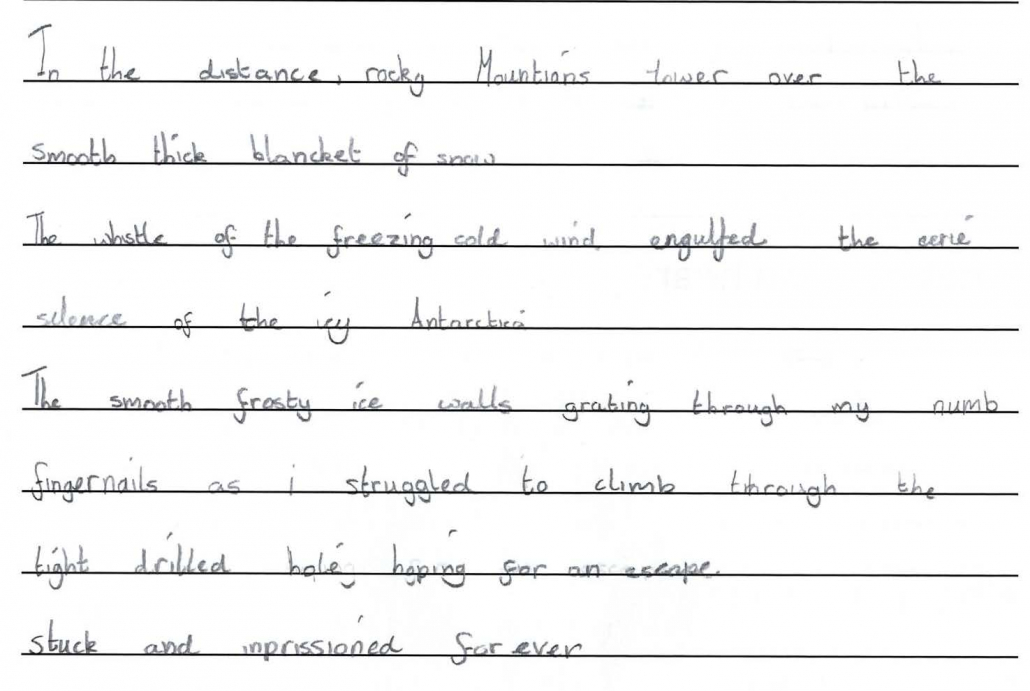 In the distance, rocky Mountians tower over the
smooth thick blancket of snow
The whistle of the freezing cold wind engulfed the eerie
silence of the icy Antarctica
The smooth frosty ice walls grating through my numb
fingernails as i struggled to climb through the
tight drilled hole, hoping for an escape.
stuck and inprissioned for ever